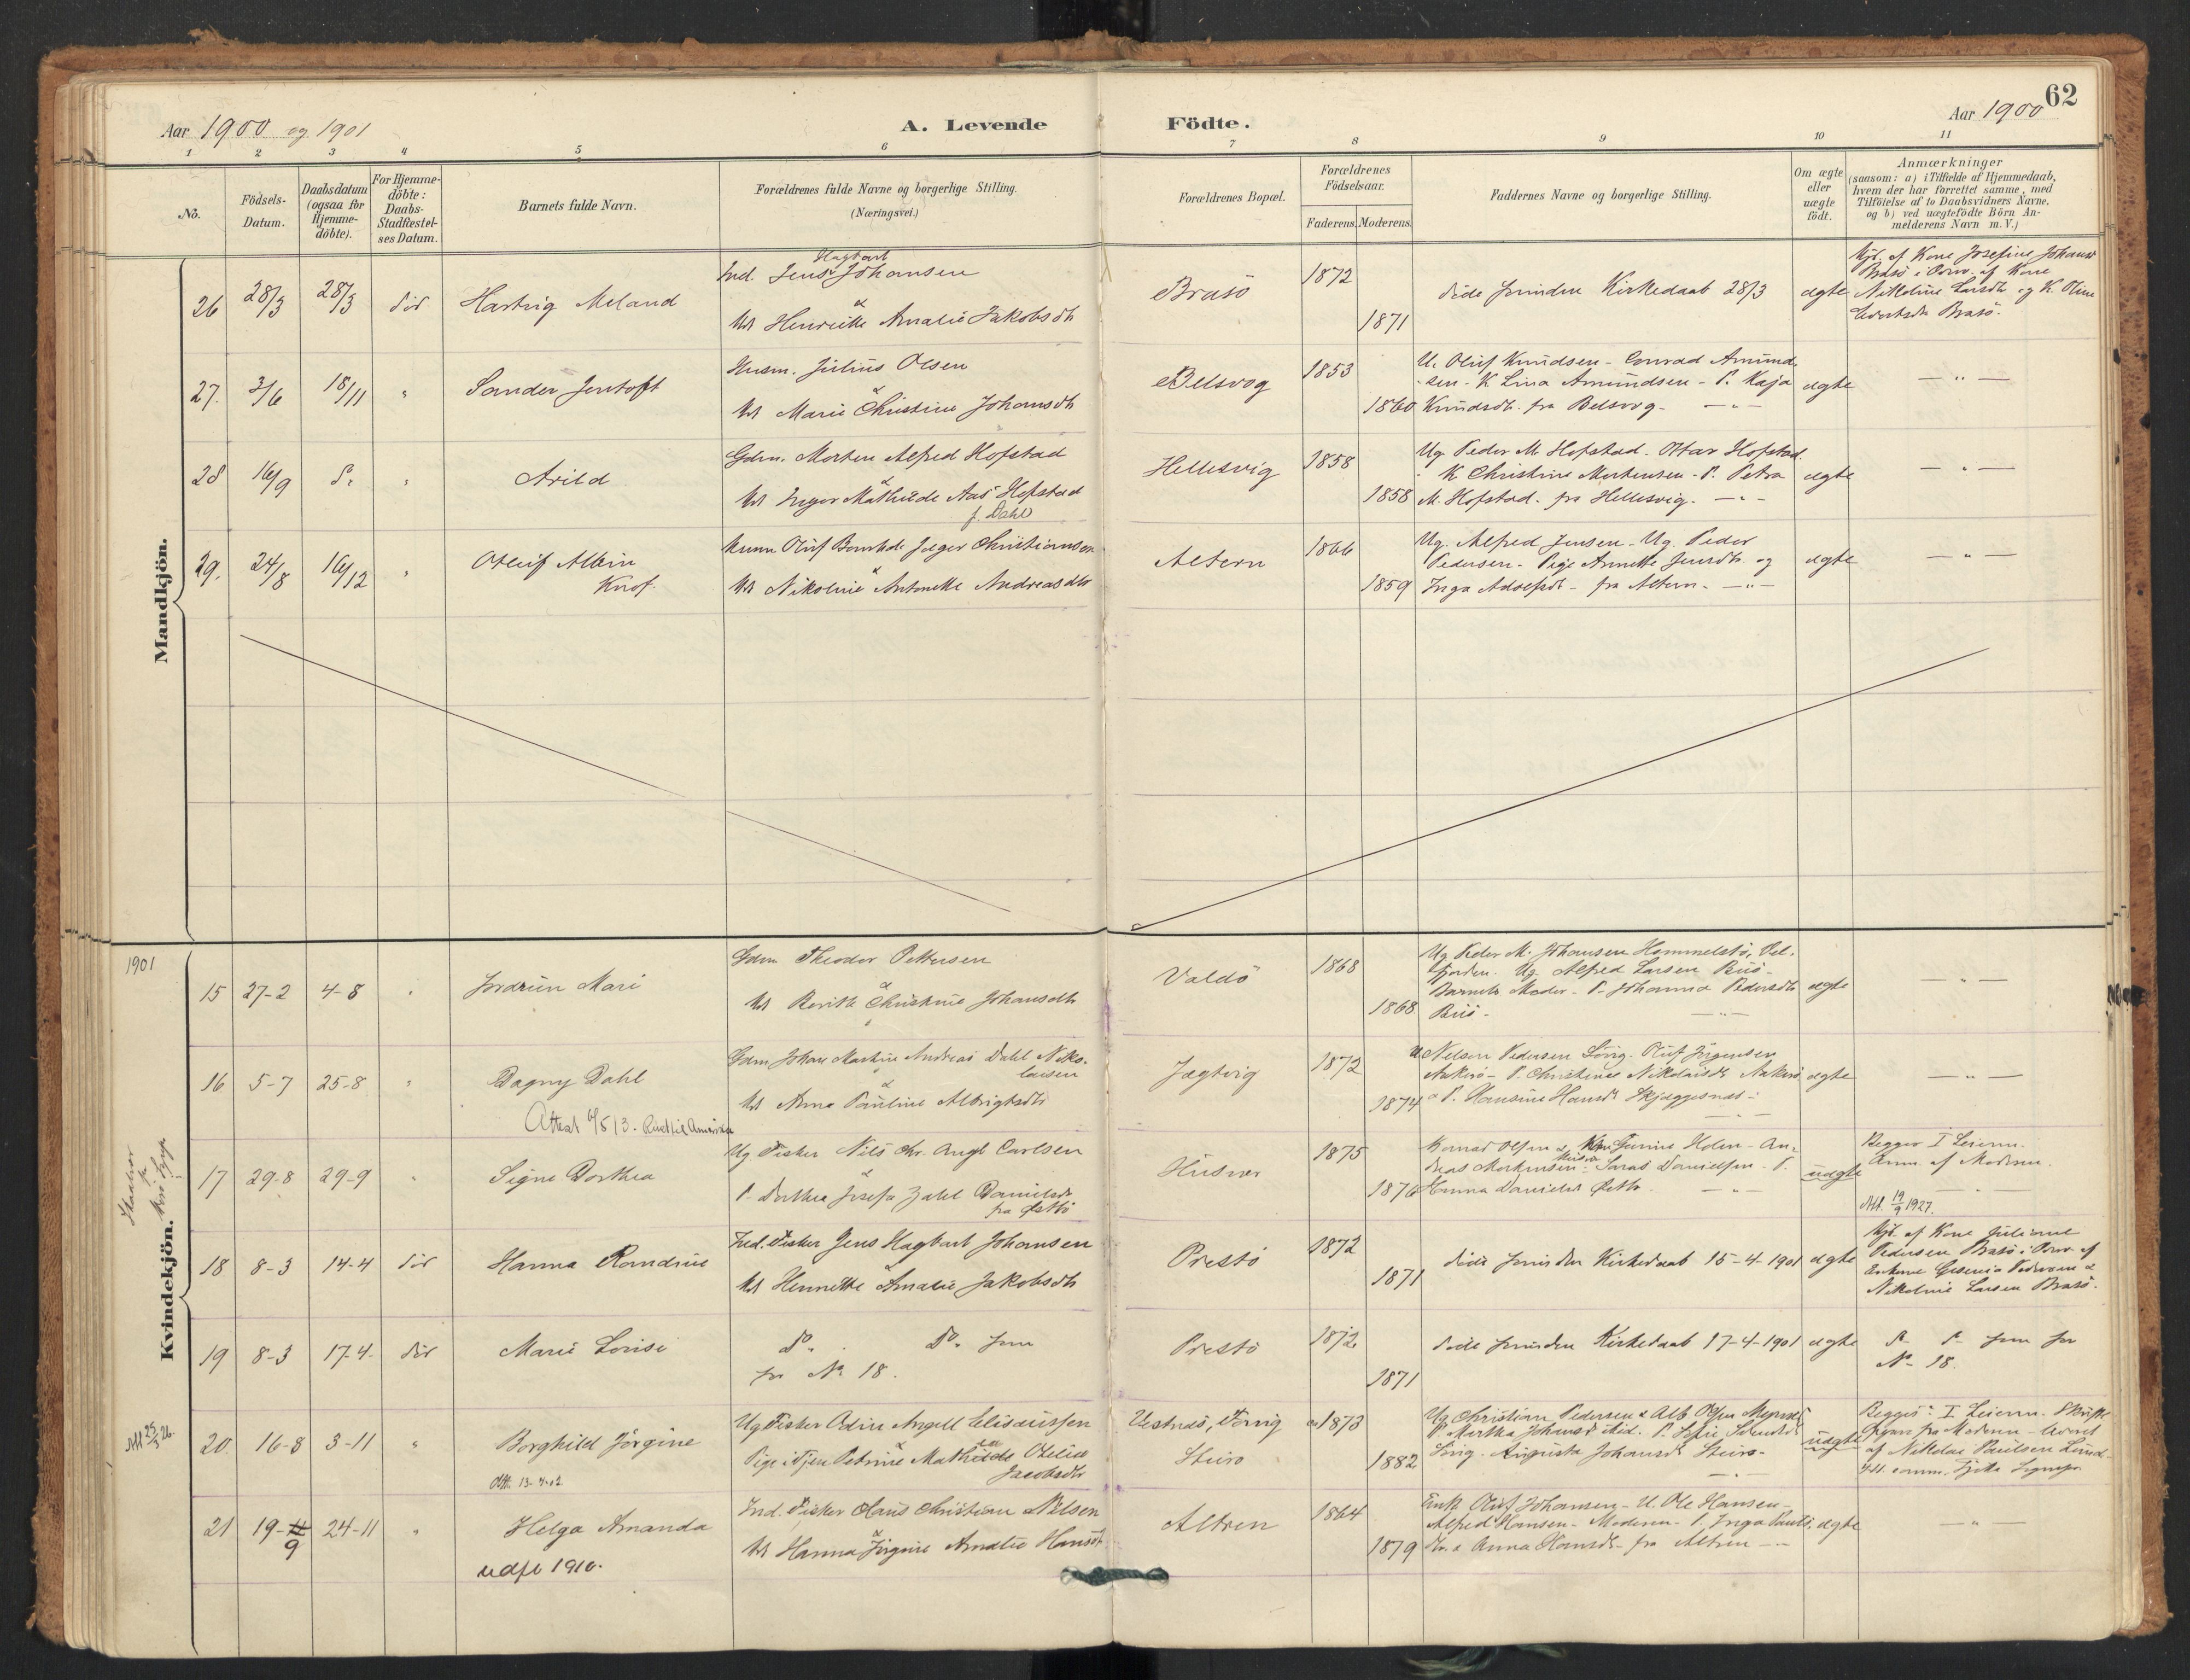 62
Aar 1900 og 1901
A. Levende
Födte.
Aar 1900
1 2 3 4 5 6 7 8 9 10 11
No.
Födsels-
Datum.
Daabsdatum
(ogsaa for
Hjemme-
döbte).
For Hjemme-
döbte:
Daabs-
Stadfæstel-
ses Datum.
Barnets fulde Navn.
Forældrenes fulde Navne og borgerlige Stilling.
(Næringsvei.)
Forældrenes Bopæl.
Forældrenes
Födselsaar.
Faderens. Moderens.
Faddernes Navne og borgerlige Stilling.
Om ægte
eller
uægte
födt.
Anmærkninger
(saasom: a) i Tilfælde af Hjemmedaab,
hvem der har forrettet samme, med
Tilföielse af to Daabsvidners Navne,
og b) ved uægtefödte Börn An-
melderens Navn m. V.)
Mandkjön.
26 28/3 28/3 död Hartvig Meland
Ind. Jens Hagbart Johansen
&
Henriette Amalie Jakobsdtr
Brasö 1872
1871
döde forinden Kirkedaab 28/3
ægte
Hjd. af Kone Josefine Johans
Brasö i Overv. af Kone
Nikoline Larsdtr og K. Oline
Brasö.
27. 3/6 18/11 " Sander Jentoft
Husm. Julius Olsen
&
Marie Christine Johansdtr
Belsvog 1853
1860
U. Oluf Knudsen - Conrad Amund-
sen - K Lina Amundsen - P. Kaja
Knudsdtr. fra Belsvog. — " —
ægte — " —
28 16/9 D. " Arild
Gdm. Morten Alfred Hofstad
&
Inger Mathilde Aas Hofstad
f. Dahl
Hellesvig 1858
1858
Ug. Peder M. Hofstad. Ottar Hofstad.
K Christine Mortensen - P. Petra
M. Hofstad. fra Hellesvig. — " —
ægte — " —
29. 24/8 16/12 " Oluf Albin
Knof.
Oluf Jæger Christiansen
&
Nikoline Antonette Andreasdtr
Altern 1866
1859
Ug. Alfred Jensen - Ug. Peder
Pedersen - Pige Annette Jensdtr og
Inga Adolfsdtr - fra Altern. — " —
ægte — " —
1901
Kvindekjön.
15 27-2 4-8 " Jordrun Mari
Gdm Theodor Pettersen
&
Berith Christine Johansdtr
Valdö 1868
1868
Ug Peder M. Johansen Hommelstö, Vel-
fjorden. Ug Alfred Larsen Buö -
Barnets Moder - P. Johanna Pedersdtr
Buö - — " —
ægte — " —
16 5-7 25-8 " Dagny Dahl
Attest 6/5 13. Amerika
Gdm Johan Martin Andreas Dahl Niko-
laisen
&
Anna Pauline Albrigtsdtr
Jægtvig 1872
1874
U Nelson Pedersen Lörig. Oluf Jörgensen
Aakerö - P. Christense Nikolaisdtr Aakerö
& P. Hansine Hansdtr Skjæggesnes -
— " —
ægte — " —
17 29-8 29-9 " Signe Dorthea
Ug Fisker Nils Chr. Angel Carlsen
&
P. Dorthea Josefa Zahl Danielsdtr
fra Östbö
Husvær 1875
1876
Konrad Olsen & Gunine Holen - An-
dreas Mortensen - Saras Danielsen P.
Hanna Danielsd Östbö — " —
uægte
Begges I Leierm.
Anm. af Moderen.
Att. 19/9 1927.
18 8-3 14-4 död Hanna Romdine
Ind. Fisker Jens Hagbart Johansen
&
Henriette Amalie Jakobsdtr
Prestö 1872
1871
döde forinden Kirkedaab 15-4-1901
ægte
Hjd. af Kone Juliane
Pedersen Brasö i Overv. af
Enkene Pedersen &
Nikoline Larsen Brasö.
19 8-3 17-4. död Marie Lovise
Do. Do. som
for No 18.
Prestö 1872
1871
döde forinden Kirkedaab 17-4-1901
ægte
D. D. som for
No 18.
Att 25/3 26.
20 16-8 3-11 " Borghild Jörgine
Att. 13-4-12
Ug Fisker Odin Angell Eliaussen
&
Pige i Tjen Petrine Mathilde Otelie
Jacobsdtr
Vestnes, Tönvig
Sturo
1873
1882
Ug Christian Pedersen & Alb Olsen
P. Martha Johansd ibid. P. Sofie
Augusta Johansdtr Sturo -
uægte
Begges I Leierm. Skriftl.
Opgave fra Moderen leveret
af Nikolai Paulsen Lund
21 19-11 9 24-11 " Helga Amanda
udfl 1910.
Ind. Fisker Hans Christian Nilsen
&
Hanna Jörgine Amalie Hansdtr
Altren 1864
1879
Enkm Oluf Johansen - U. Ole Hansen -
Alfred Hansen - Moderen - P. Inga Pauls-
dtr & Anna Hansdtr - fra Altren —
ægte — " —